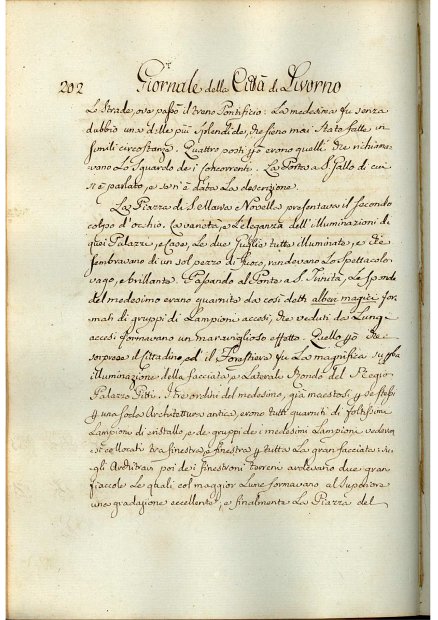 202 Giornale della Città di Livorno
Le Strade, ove passò il treno Pontificio: La medesima fu senza
dubbio una delle più splendide, che sieno mai state fatte in
simili circostanze. Quattro posti però erano quelli che richiama=
vano lo sguardo dei concorrenti. La Porta a S. Gallo di cui
si è parlato, e se n'è data la descrizione.
La Piazza di S. Maria Novella presentava il secondo
colpo d'occhio. La varietà, e l'eleganza dell'Illuminazioni di
quei Palazzi, e Case, le due Guglie tutte illuminate, e che
sembravano di un sol pezzo di fuoco, rendevano lo spettacolo
vago, e brillante. Passando al Ponte a S. Trinità, le sponde
del medesimo erano guarnite da così detti alberi magici for=
mati di gruppi di Lampioni accesi, che veduti da lungi
accesi formavano un maraviglioso effetto. Quello però che
sorprese il Cittadino, ed il Forestiere fu la magnifica
illuminazione della facciata e Laterale Tondo del Regio
Palazzo Pitti. I tre ordini del medesimo, già maestosi per se stessi
per una soda Architettura antica, erano tutti guarniti di foltissimi
Lampioni di cristallo, e de gruppi de i medesimi Lampioni vedevan
si collocati tra finestra e finestra per tutta la gran facciata: su=
gli Architravi poi dei finestroni terreni ardevano due gran
fiaccole le quali col maggior lume formavano al superiore
una gradazione eccellente, e finalmente La Piazza del